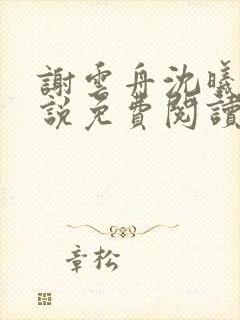 謝雲舟沈曦
說免費閱讀
章松